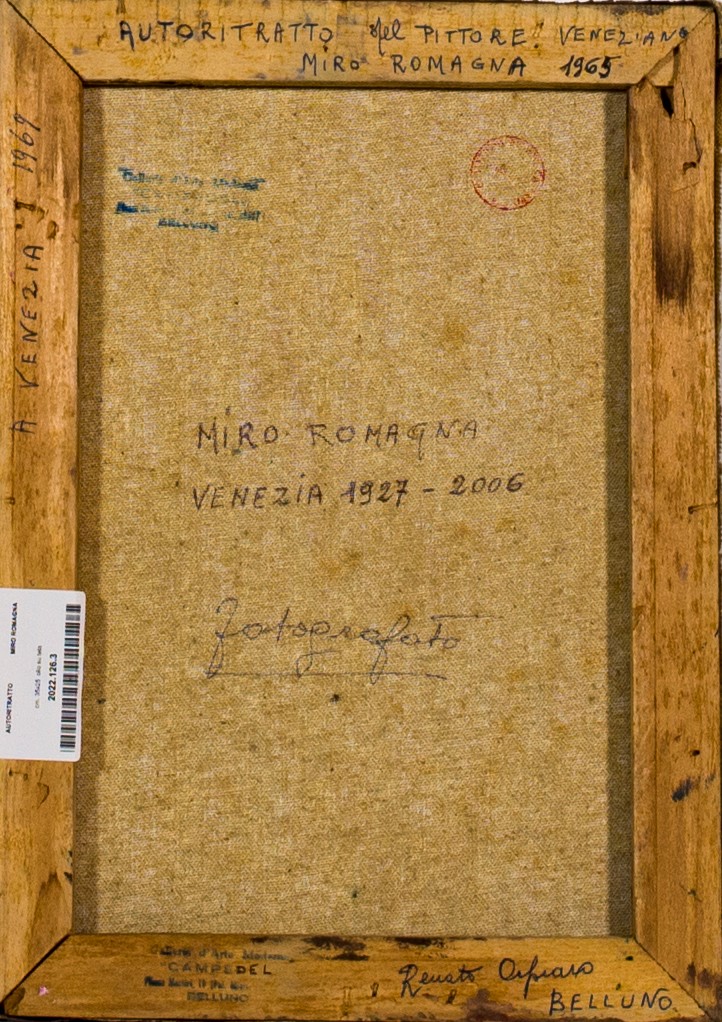 AUTORITRATTO del PITTORE VENEZIANO
MIRO ROMAGNA 1965
A VENEZIA
Galleria d'Arte Moderna
BELLUNO
MIRO ROMAGNA
VENEZIA 1927 - 2006
fotografato
AUTORITRATTO
MIRO ROMAGNA
olio su tela
2022.126.3
Galleria d'Arte Moderna
CAMPEDEL
BELLUNO
Renato
BELLUNO